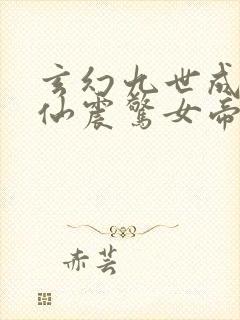 玄幻九世成
仙震惊女帝
赤芸